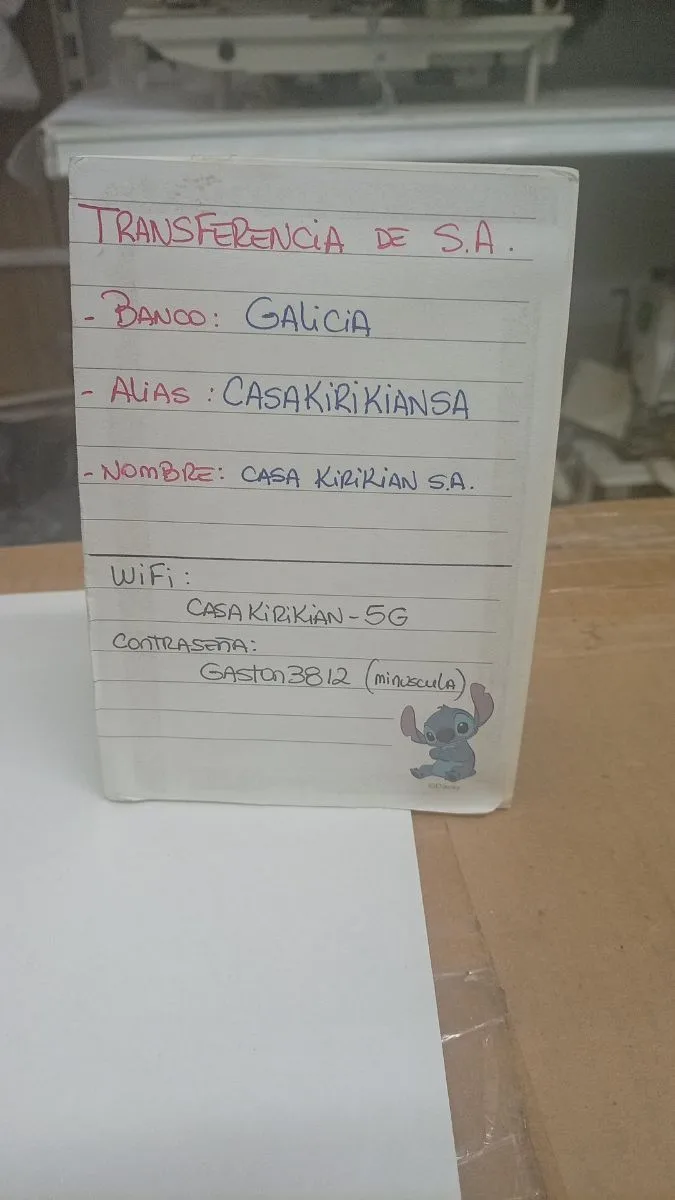 TRANSFERENCIA DE S.A.
- BANCO: GALiCiA
- ALiAS : CASAKiRiKiANSA
- NOMBRE: CASA KiRiKiAN S.A.
WiFi:
CASAKiRiKiAN-5G
CONTRASEÑA:
GAston3812 (minusculA)
©Disney